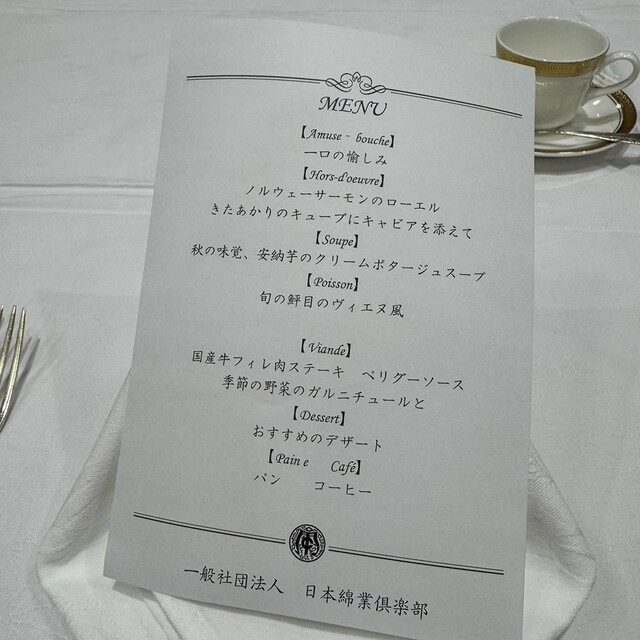 MENU
【Amuse‐bouche】
一口の愉しみ
【Hors-d'oeuvre】
ノルウェーサーモンのローエル
きたあかりのキューブにキャビアを添えて
【Soupe】
秋の味覚、安納芋のクリームポタージュスープ
【Poisson】
旬の鮮目のヴィエヌ風
【Viande】
国産牛フィレ肉ステーキ　ペリグーソース
季節の野菜のガルニチュールと
【Dessert】
おすすめのデザート
【Pain e　Café】
パン　　コーヒー
一般社団法人　日本綿業倶楽部